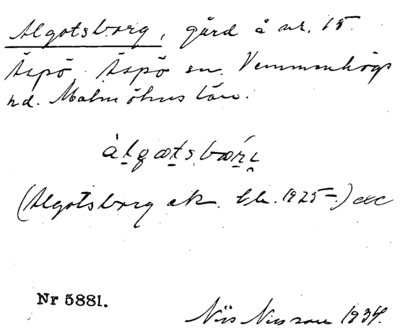 Algotsborg, gård å nr. 15
Äspö, Äspö sn. Vemmenhögs
hd. Malmöhus län.
(Algotsborg ek. bl. 1925–) etc
Nr 5881.
Nils Nilsson 1934.